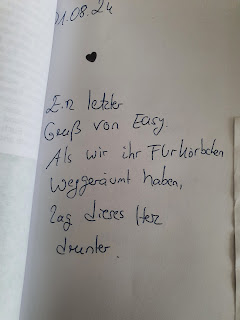 01.08.24
Ein letzter
Gruß von Easy.
Als wir ihr Flurkörbchen
weggeräumt haben,
lag dieses Herz
drunter.